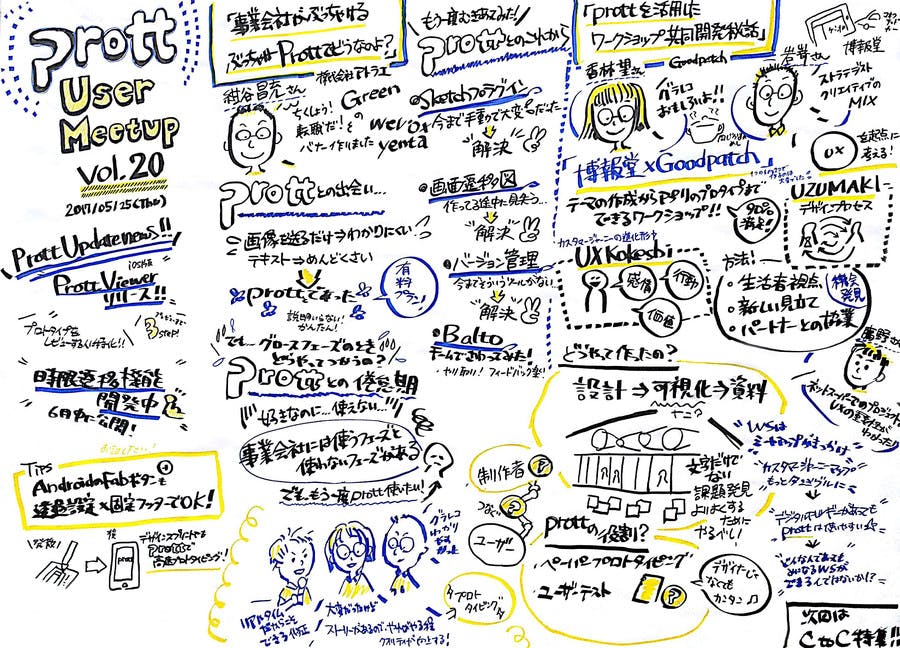 Prott
User
Meetup
vol.20
2017/05/25(Thu)
Prott Update news!!
iOS版
Prott Viewer
リリース!!
プロトタイプを
3 STEP!
時限遷移機能
開発中
6月末に公開!
Tips
AndroidのFabボタンも
遷移設定×固定フッターでOK!
後
Prottで
高速プロトタイピング!
「事業会社からぶっちゃける
ぶっちゃけProttってどうなのよ?」
株式会社アトラエ
紺谷昌充さん
ちくしょう!
転職だ!の
バナー作りました
Green
wevox
yenta
Prottとの出会い…
画像を送るだけ→わかりにくい
テキスト→めんどくさい
Prottであった
有料プラン!
説明いらない!
かんたん!
で… グロースフェーズのとき
どうやってつかうの?
Prottとの倦怠期
好きなのに…使えない…
事業会社には使うフェーズと
使わないフェーズがある
でも、もう一度Prott使いたい!
リアルタイム
できる修正
大変だったけど
ストーリーがあるので、やればやる程
クオリティが向上する!
グラレコ
もう一度むきあってみた!
Prottとのこれから
Sketchプラグイン
今まで手動で大変だった
解決
画面遷移図
作ってる途中で見失う…
解決
バージョン管理
解決
Balto
チームでさわってみた!
やり取り! フィードバック楽!
「prottを活用した
ワークショップ共同開発秘話」
香林望さん
Goodpatch
グラレコ
おもしろいよ!!
岩嵜さん
博報堂
ストラテジスト
クリエイティブの
MIX
UX
を起点に
考える!
博報堂×Goodpatch
テーマの作成からモバイルのプロトタイプまで
できるワークショップ!!
90%
満足!
UZUMAKI
デザインプロセス
カスタマージャーニーの進化形
UX Kokeshi
感情
行動
価値
方法!
・生活者視点
・新しい見立て
・パートナーとの協業
機会
発見
どうやって作ったの?
設計→可視化→資料
文字だけで
ない
課題発見
よりよくする
ために
やるべし!
制作者
つなぐ
ユーザー
プロト
タイピング
prottの役割?
ペーパープロトタイピング
ユーザーテスト
デザイナーじゃ
なくても
カンタン♪
鷹野さん
ネットスーパーでのプロジェクト
UXの重要性が
わかった!
WSは
カスタマージャーニーマップ
もっとタンジブルに
デジタルネイティブ
Prottは使いやすい
できるんではないか!?
次回は
CtoC特集!!